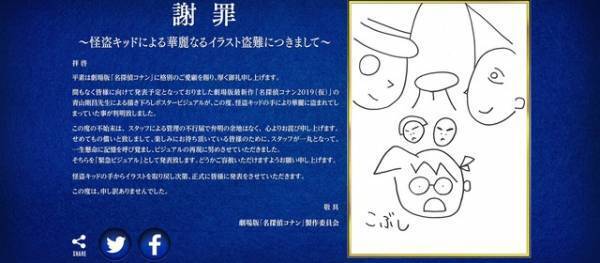 謝罪
〜怪盗キッドによる華麗なるイラスト盗難につきまして〜
拝啓
平素は劇場版「名探偵コナン」に格別のご愛顧を賜り、厚く御礼申し上げます。
間もなく皆様に向けて発表予定となっておりました劇場版最新作「名探偵コナン2019(仮)」の
青山剛昌先生による描き下ろしポスタービジュアルが、この度、怪盗キッドの手により華麗に盗まれてし
まっていた事が判明致しました。
この度の不始末は、スタッフによる管理の不行届で弁明の余地はなく、心よりお詫び申し上げます。
せめてもの償いと致しまして、楽しみにお待ち頂いている皆様のために、スタッフが一丸となって、
一生懸命に記憶を呼び覚まし、ビジュアルの再現に努めさせていただきました。
そちらを「緊急ビジュアル」として発表致します。どうかご容赦いただけますようお願い申し上げます。
怪盗キッドの手からイラストを取り戻し次第、正式に皆様に発表をさせていただきます。
この度は、申し訳ありませんでした。
敬具
劇場版「名探偵コナン」製作委員会
SHARE
こぶし